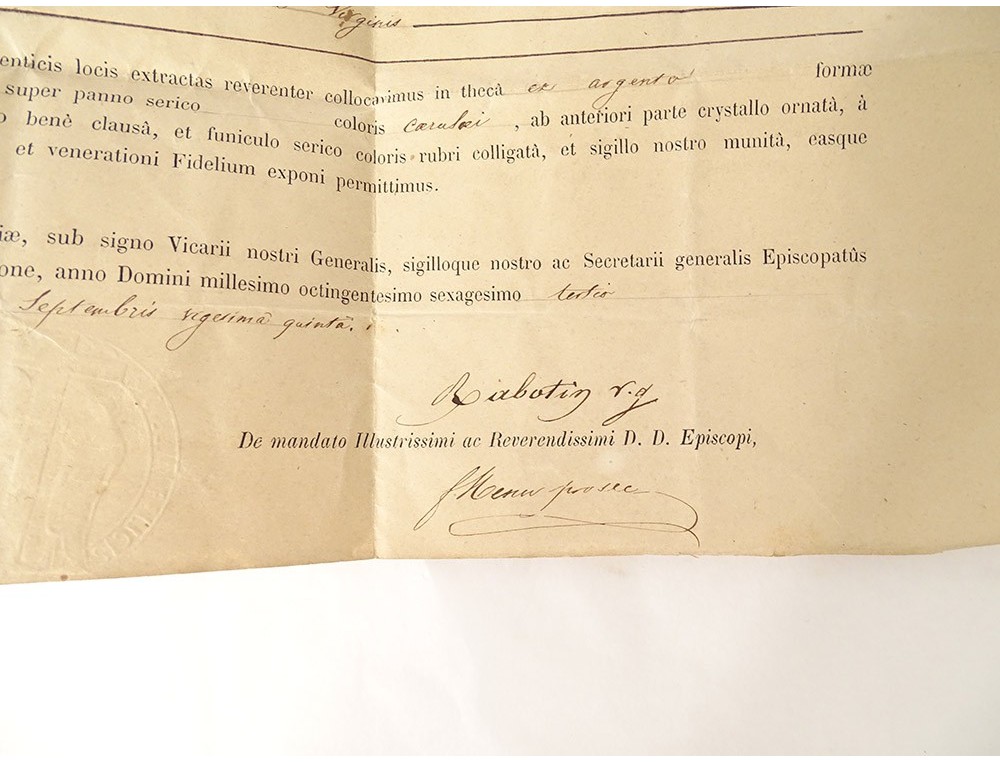 Virginis
enticis locis extractas reverenter collocavimus in thecâ ex argento formæ
super panno serico coloris cærulæi , ab anteriori parte crystallo ornatâ, à
o benè clausâ, et funiculo serico coloris rubri colligatâ, et sigillo nostro munitâ, easque
et venerationi Fidelium exponi permittimus.
iæ, sub signo Vicarii nostri Generalis, sigilloque nostro ac Secretarii generalis Episcopatûs
one, anno Domini millesimo octingentesimo sexagesimo tertio
Septembris vigesimâ quintâ.
Rabotin v.g
De mandato Illustrissimi ac Reverendissimi D. D. Episcopi,
prosec